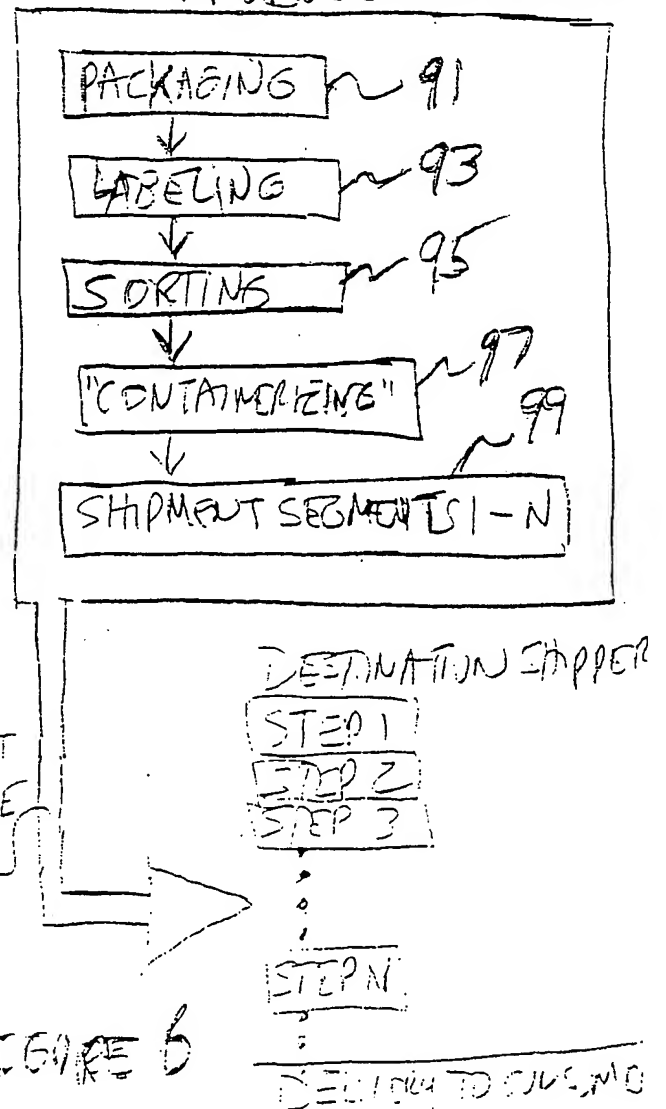 PACKAGING 91
LABELING 93
SORTING 95
"CONTAINERIZING" 97
99
SHIPMENT SEGMENTS 1 - N
DESTINATION SHIPPER
STEP 1
STEP 2
STEP 3
STEP N
6
DELIVERY TO